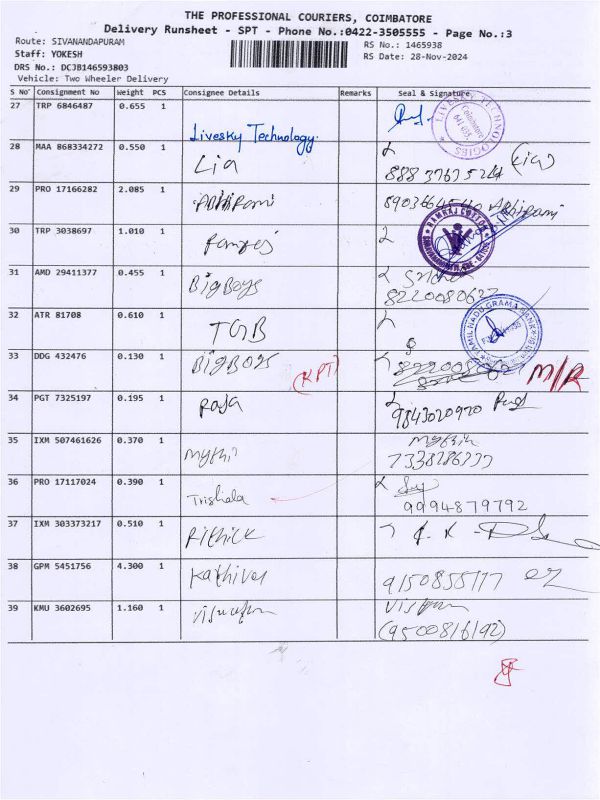 THE PROFESSIONAL COURIERS, COIMBATORE
Delivery Runsheet - SPT - Phone No.:0422-3505555 - Page No.:3
Route: SIVANANDAPURAM
Staff: YOKESH
DRS No.: DCJB146593803
Vehicle: Two Wheeler Delivery
RS No.: 1465938
RS Date: 28-Nov-2024
S No Consignment No Weight PCS Consignee Details Remarks Seal & Signature
27 TRP 6846487 0.655 1 Livesky Technology.
28 MAA 868334272 0.550 1 Lia (Lia)
29 PRO 17166282 2.085 1 Abhirami
30 TRP 3038697 1.010 1 RAMRAJ COTTON
31 AMD 29411377 0.455 1 BigBoys 8220080627
32 ATR 81708 0.610 1 TGB TAMIL NADU GRAMA BANK
33 DDG 432476 0.130 1 BigBoys (KPT) M/R
34 PGT 7325197 0.195 1 Raja 9843020920
35 IXM 507461626 0.370 1 Mythi
36 PRO 17117024 0.390 1 Trishala 9994879792
37 IXM 303373217 0.510 1 Rithick
38 GPM 5451756 4.300 1 Kathirvel
39 KMU 3602695 1.160 1 (9500816192)